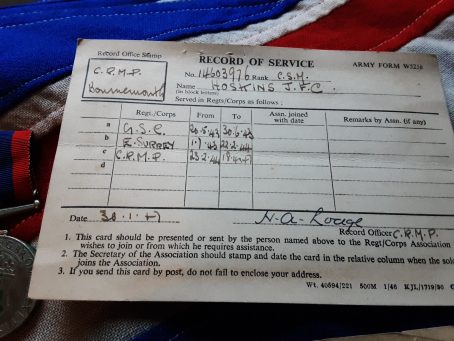 Record Office Stamp
C.R.M.P.
Bournemouth
RECORD OF SERVICE
ARMY FORM W5258
No. 14603976 Rank C.S.M.
Name HOSKINS J.F.C.
(in block letters)
Served in Regts/Corps as follows :
Regt./Corps From To Assn. joined with date Remarks by Assn. (if any)
a G.S.C. 20.5.43 30.6.43
b E. SURREY 1.7.43 22.2.44
c C.R.M.P. 23.2.44
d
Date 30.1.47
Record Officer C.R.M.P.
1. This card should be presented or sent by the person named above to the Regt/Corps Association
wishes to join or from which he requires assistance.
2. The Secretary of the Association should stamp and date the card in the relative column when the sol
joins the Association.
3. If you send this card by post, do not fail to enclose your address.
Wt. 40594/221 500M 1/46 KJL/1719/90